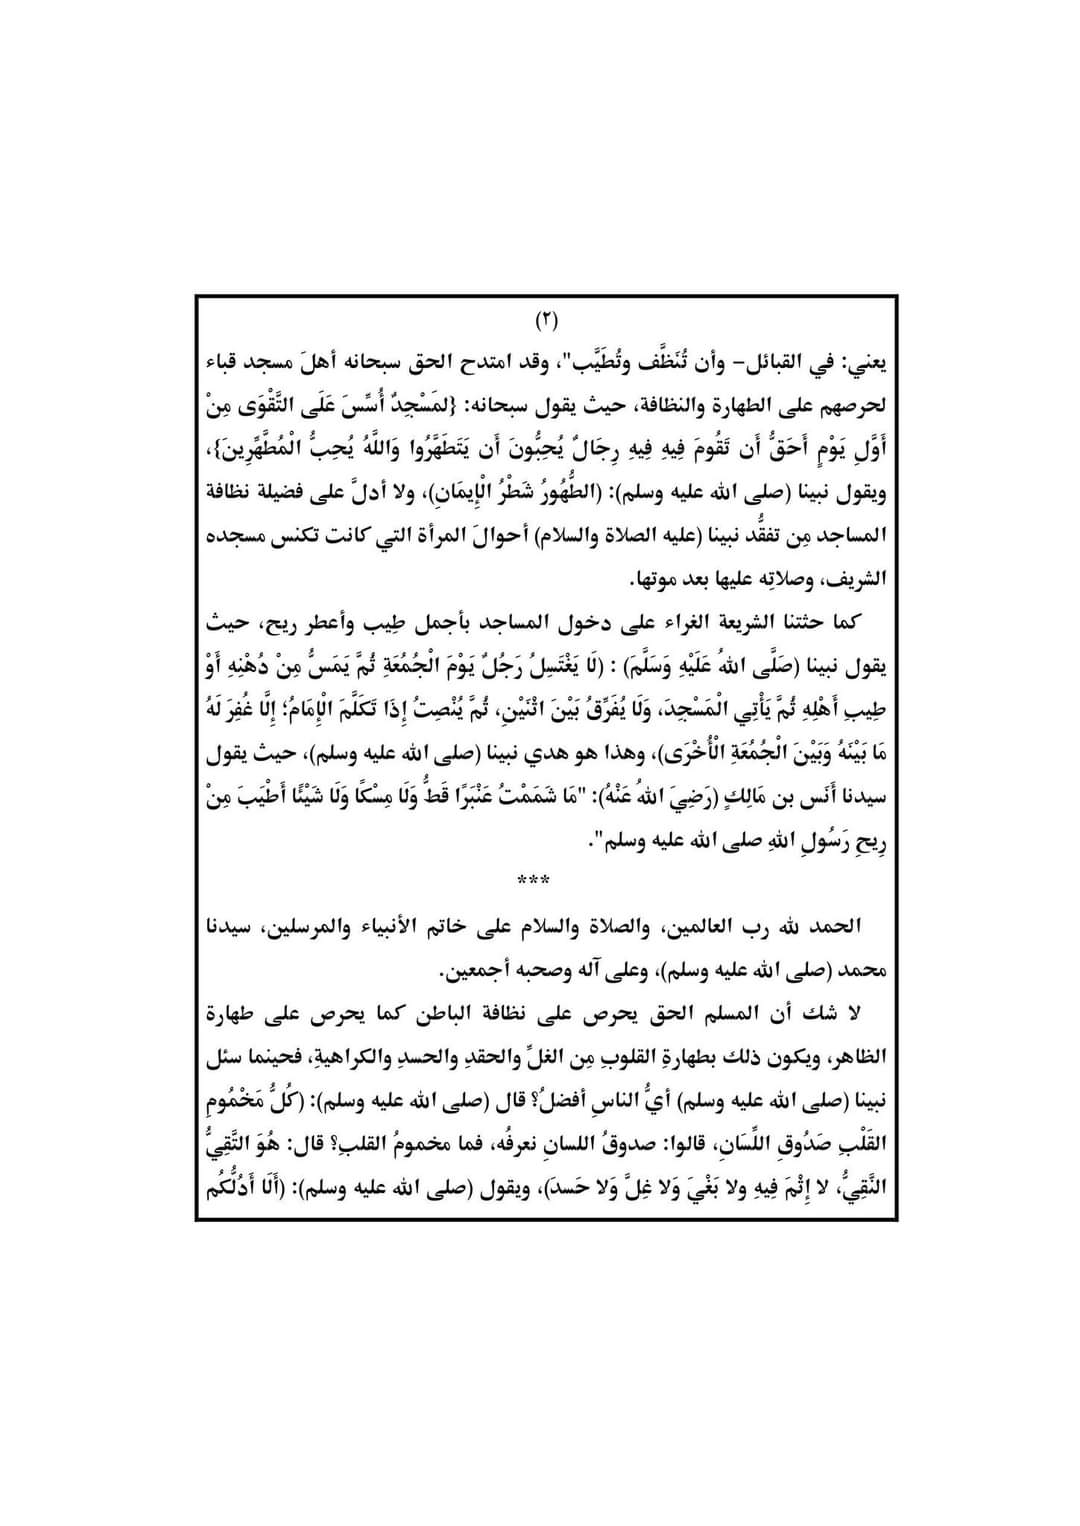 (٢)
يعني: في القبائل– وأن تُنَظَّف وتُطَيَّب"، وقد امتدح الحق سبحانه أهلَ مسجد قباء
لحرصهم على الطهارة والنظافة، حيث يقول سبحانه: {لمَسْجِدٌ أُسِّسَ عَلَى التَّقْوَى مِنْ
أَوَّلِ يَوْمٍ أَحَقُّ أَن تَقُومَ فِيهِ فِيهِ رِجَالٌ يُحِبُّونَ أَن يَتَطَهَّرُوا وَاللَّهُ يُحِبُّ الْمُطَّهِّرِينَ}،
ويقول نبينا (صلى الله عليه وسلم): (الطُّهُورُ شَطْرُ الْإِيمَانِ)، ولا أدلَّ على فضيلة نظافة
المساجد مِن تفقُّد نبينا (عليه الصلاة والسلام) أحوالَ المرأة التي كانت تكنس مسجده
الشريف، وصلاتِه عليها بعد موتها.
كما حثتنا الشريعة الغراء على دخول المساجد بأجمل طِيب وأعطر ريح، حيث
يقول نبينا (صَلَّى اللهُ عَلَيْهِ وَسَلَّمَ) : (لَا يَغْتَسِلُ رَجُلٌ يَوْمَ الْجُمُعَةِ ثُمَّ يَمَسُّ مِنْ دُهْنِهِ أَوْ
طِيبِ أَهْلِهِ ثُمَّ يَأْتِي الْمَسْجِدَ، وَلَا يُفَرِّقُ بَيْنَ اثْنَيْنِ، ثُمَّ يُنْصِتُ إِذَا تَكَلَّمَ الْإِمَامُ؛ إِلَّا غُفِرَ لَهُ
مَا بَيْنَهُ وَبَيْنَ الْجُمُعَةِ الْأُخْرَى)، وهذا هو هدي نبينا (صلى الله عليه وسلم)، حيث يقول
سيدنا أَنَس بن مَالِكٍ (رَضِيَ اللهُ عَنْهُ): "مَا شَمَمْتُ عَنْبَرًا قَطُّ وَلَا مِسْكًا وَلَا شَيْئًا أَطْيَبَ مِنْ
رِيحِ رَسُولِ اللهِ صلى الله عليه وسلم".
***
الحمد لله رب العالمين، والصلاة والسلام على خاتم الأنبياء والمرسلين، سيدنا
محمد (صلى الله عليه وسلم)، وعلى آله وصحبه أجمعين.
لا شك أن المسلم الحق يحرص على نظافة الباطن كما يحرص على طهارة
الظاهر، ويكون ذلك بطهارةِ القلوبِ مِن الغلِّ والحقدِ والحسدِ والكراهيةِ، فحينما سئل
نبينا (صلى الله عليه وسلم) أيُّ الناسِ أفضلُ؟ قال (صلى الله عليه وسلم): (كُلُّ مَخْمُومِ
القَلْبِ صَدُوقِ اللِّسَانِ، قالوا: صدوقُ اللسانِ نعرفُه، فما مخمومُ القلبِ؟ قال: هُوَ التَّقِيُّ
النَّقِيُّ، لا إِثْمَ فِيهِ ولا بَغْيَ وَلا غِلَّ وَلا حَسدَ)، ويقول (صلى الله عليه وسلم): (أَلَا أَدُلُّكُم